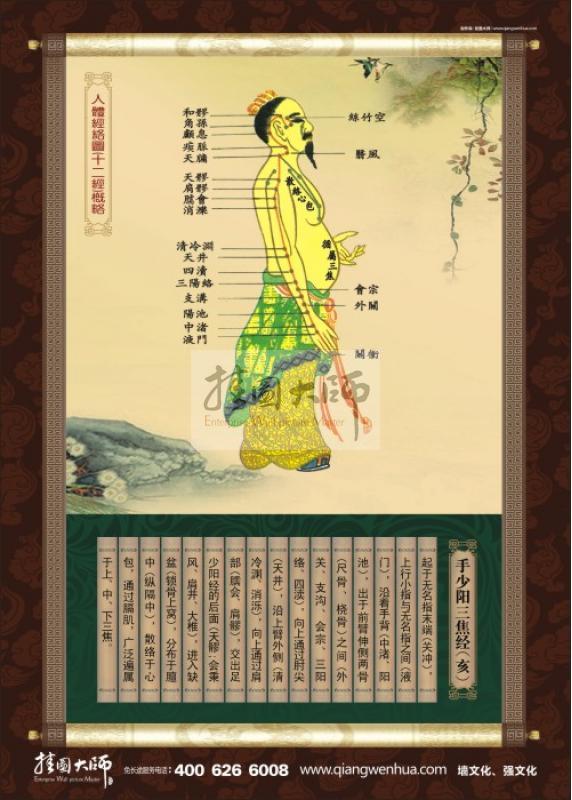 挂图大师 www.qiangwenhua.com
人體經絡圖(十二經概略
和髎
角孫
顱息
瘈脈
天牖
天髎
肩髎
臑會
消濼
清冷淵
天井
四瀆
三陽絡
支溝
陽池
中渚
液門
絲竹空
翳風
會宗
外關
關衝
散絡心包
循屬三焦
挂图大師
Enterprise Wall picture Master
手少阳三焦经(亥)
起于无名指末端(关冲),
上行小指与无名指之间(液
门),沿着手背(中渚、阳
池),出于前臂伸侧两骨
(尺骨、桡骨)之间(外
关、支沟、会宗、三阳
络、四渎),向上通过肘尖
(天井),沿上臂外侧(清
冷渊、消泺),向上通过肩
部(臑会、肩髎),交出足
少阳经的后面(天髎)会秉
风、肩井、大椎),进入缺
盆(锁骨上窝),分布于膻
中(纵隔中),散络于心
包,通过膈肌,广泛遍属
于上、中、下三焦。
挂图大師
Enterprise Wall picture Master
免长途服务电话:400 626 6008 www.qiangwenhua.com 墙文化、强文化